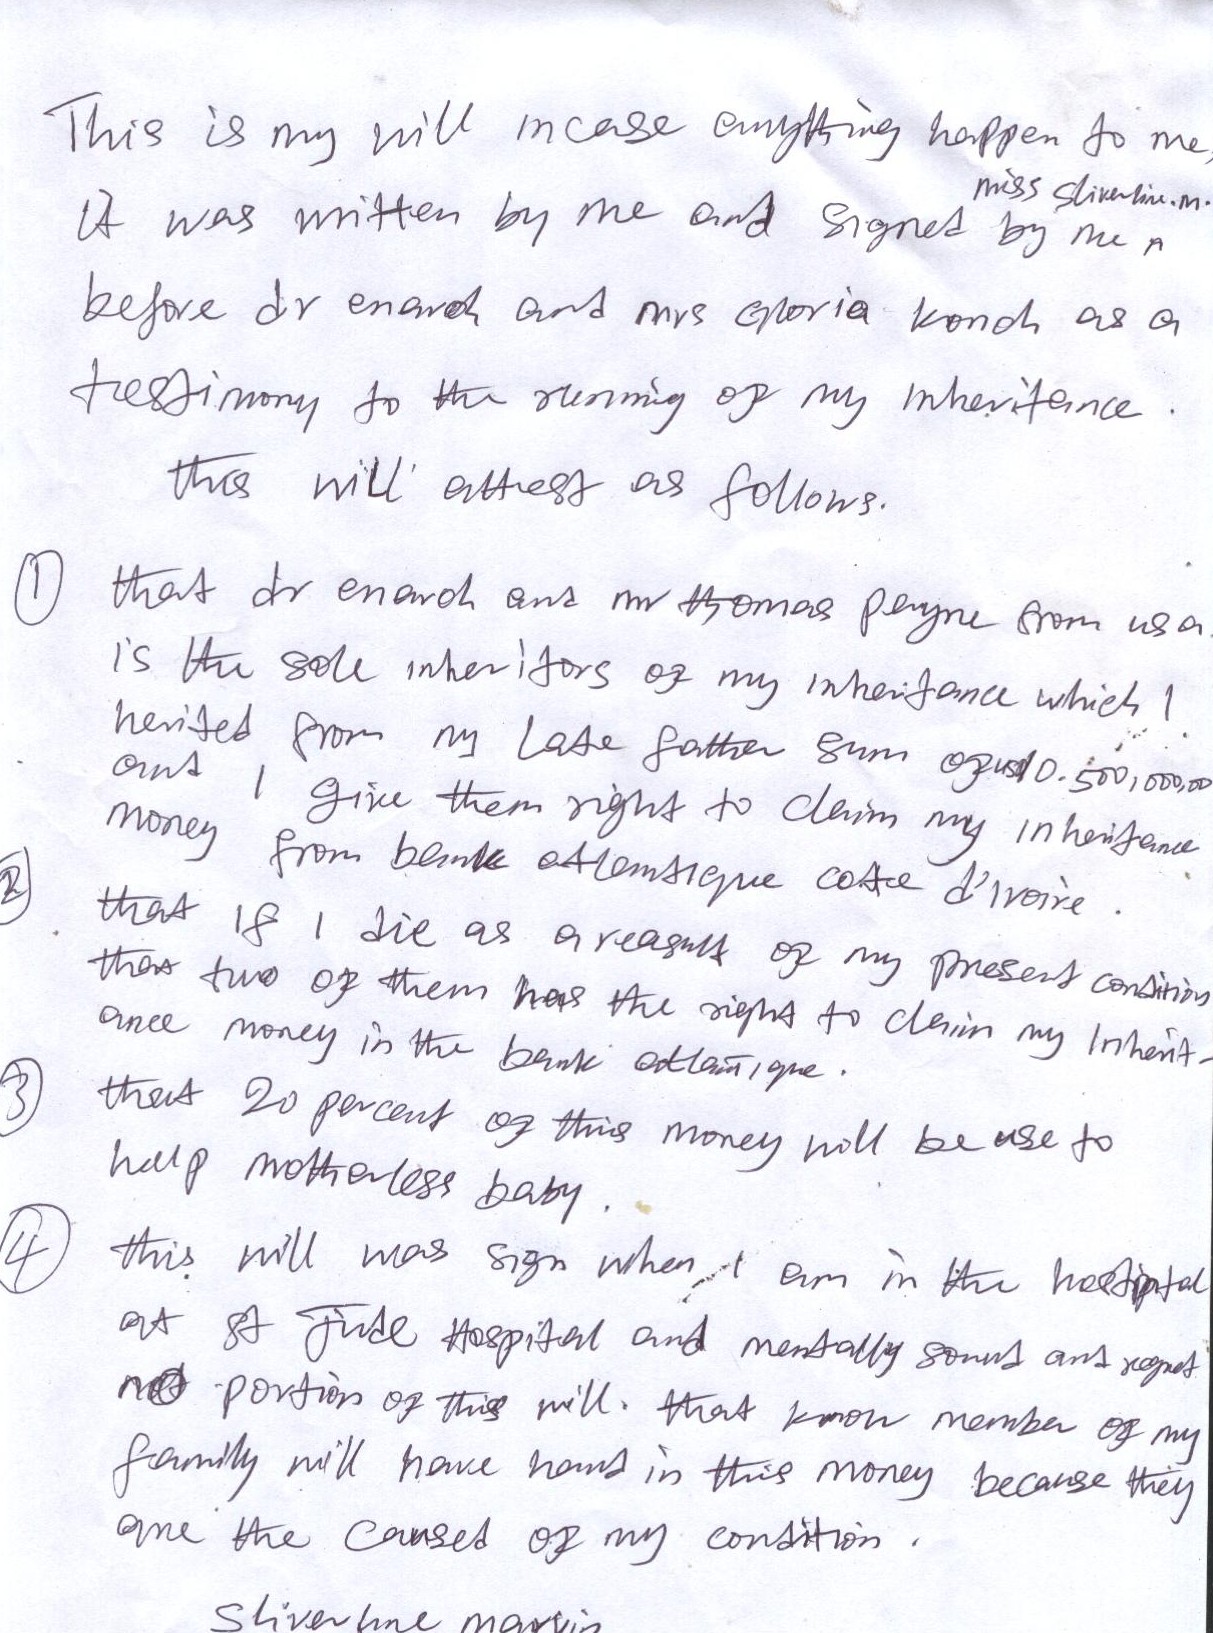 This is my will incase anything happen to me,
miss Sliverline.m.
it was written by me and signed by me ^
before dr enaroh and mrs gloria konoh as a
testimony to the running of my inheritance.
this will attest as follows.
① that dr enaroh and mr thomas payne from usa.
is the sole inheritors of my inheritance which I
herited from my late father sum of us10.500,000,00
and I give them right to claim my inheritance
money from bank atlantique cotte d'ivoire.
② that if I die as a reasult of my present condition
that two of them has the right to claim my Inherit-
ance money in the bank atlantique.
③ that 20 percent of this money will be use to
help motherless baby.
④ this will was sign when I am in the hostipital
at st Jude Hospital and mentally sound and regret
not portion of this will. that know member of my
family will have hand in this money because they
are the caused of my condition.
Sliverline marvin